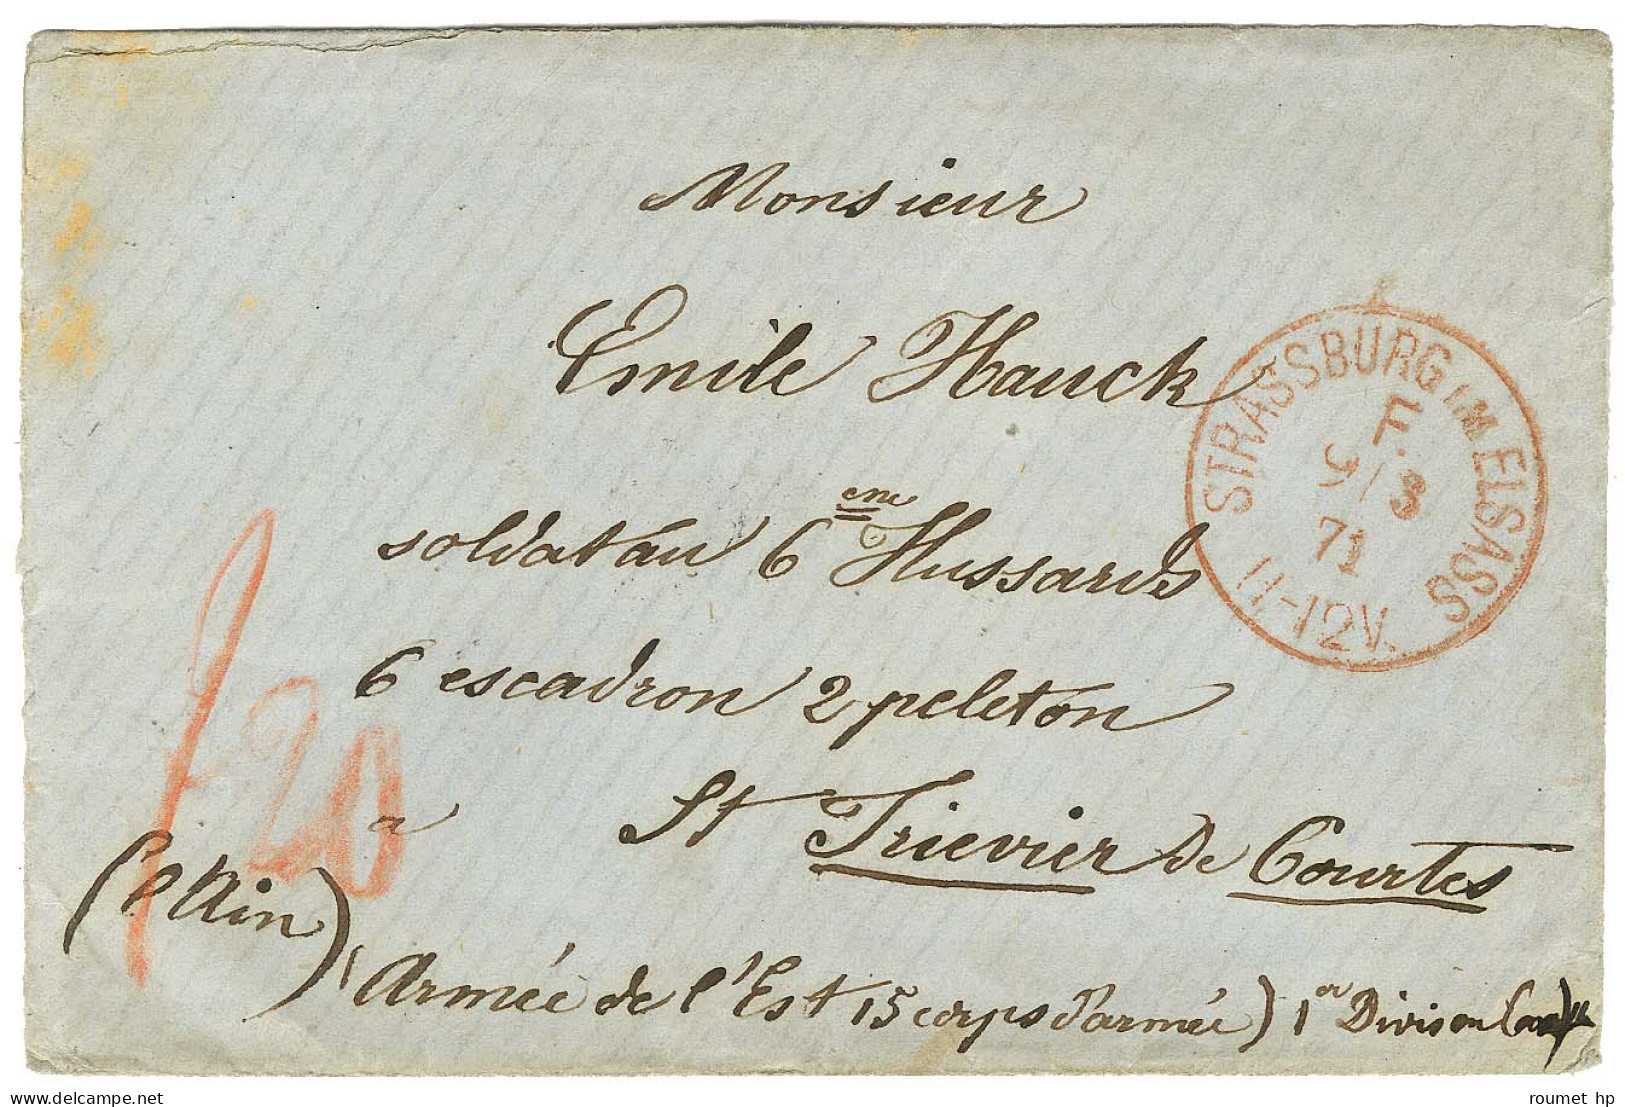 Monsieur
Emile Hauck
STRASSBURG IM ELSASS
F.
9/3
71
11-12V.
soldat au 6eme Hussards
6 escadron 2 peleton
f 20
a St Trievier de Courtes
(l'Ain)
(Armée de l'Est 15 corps d'armée) 1er Divison
roumet hp